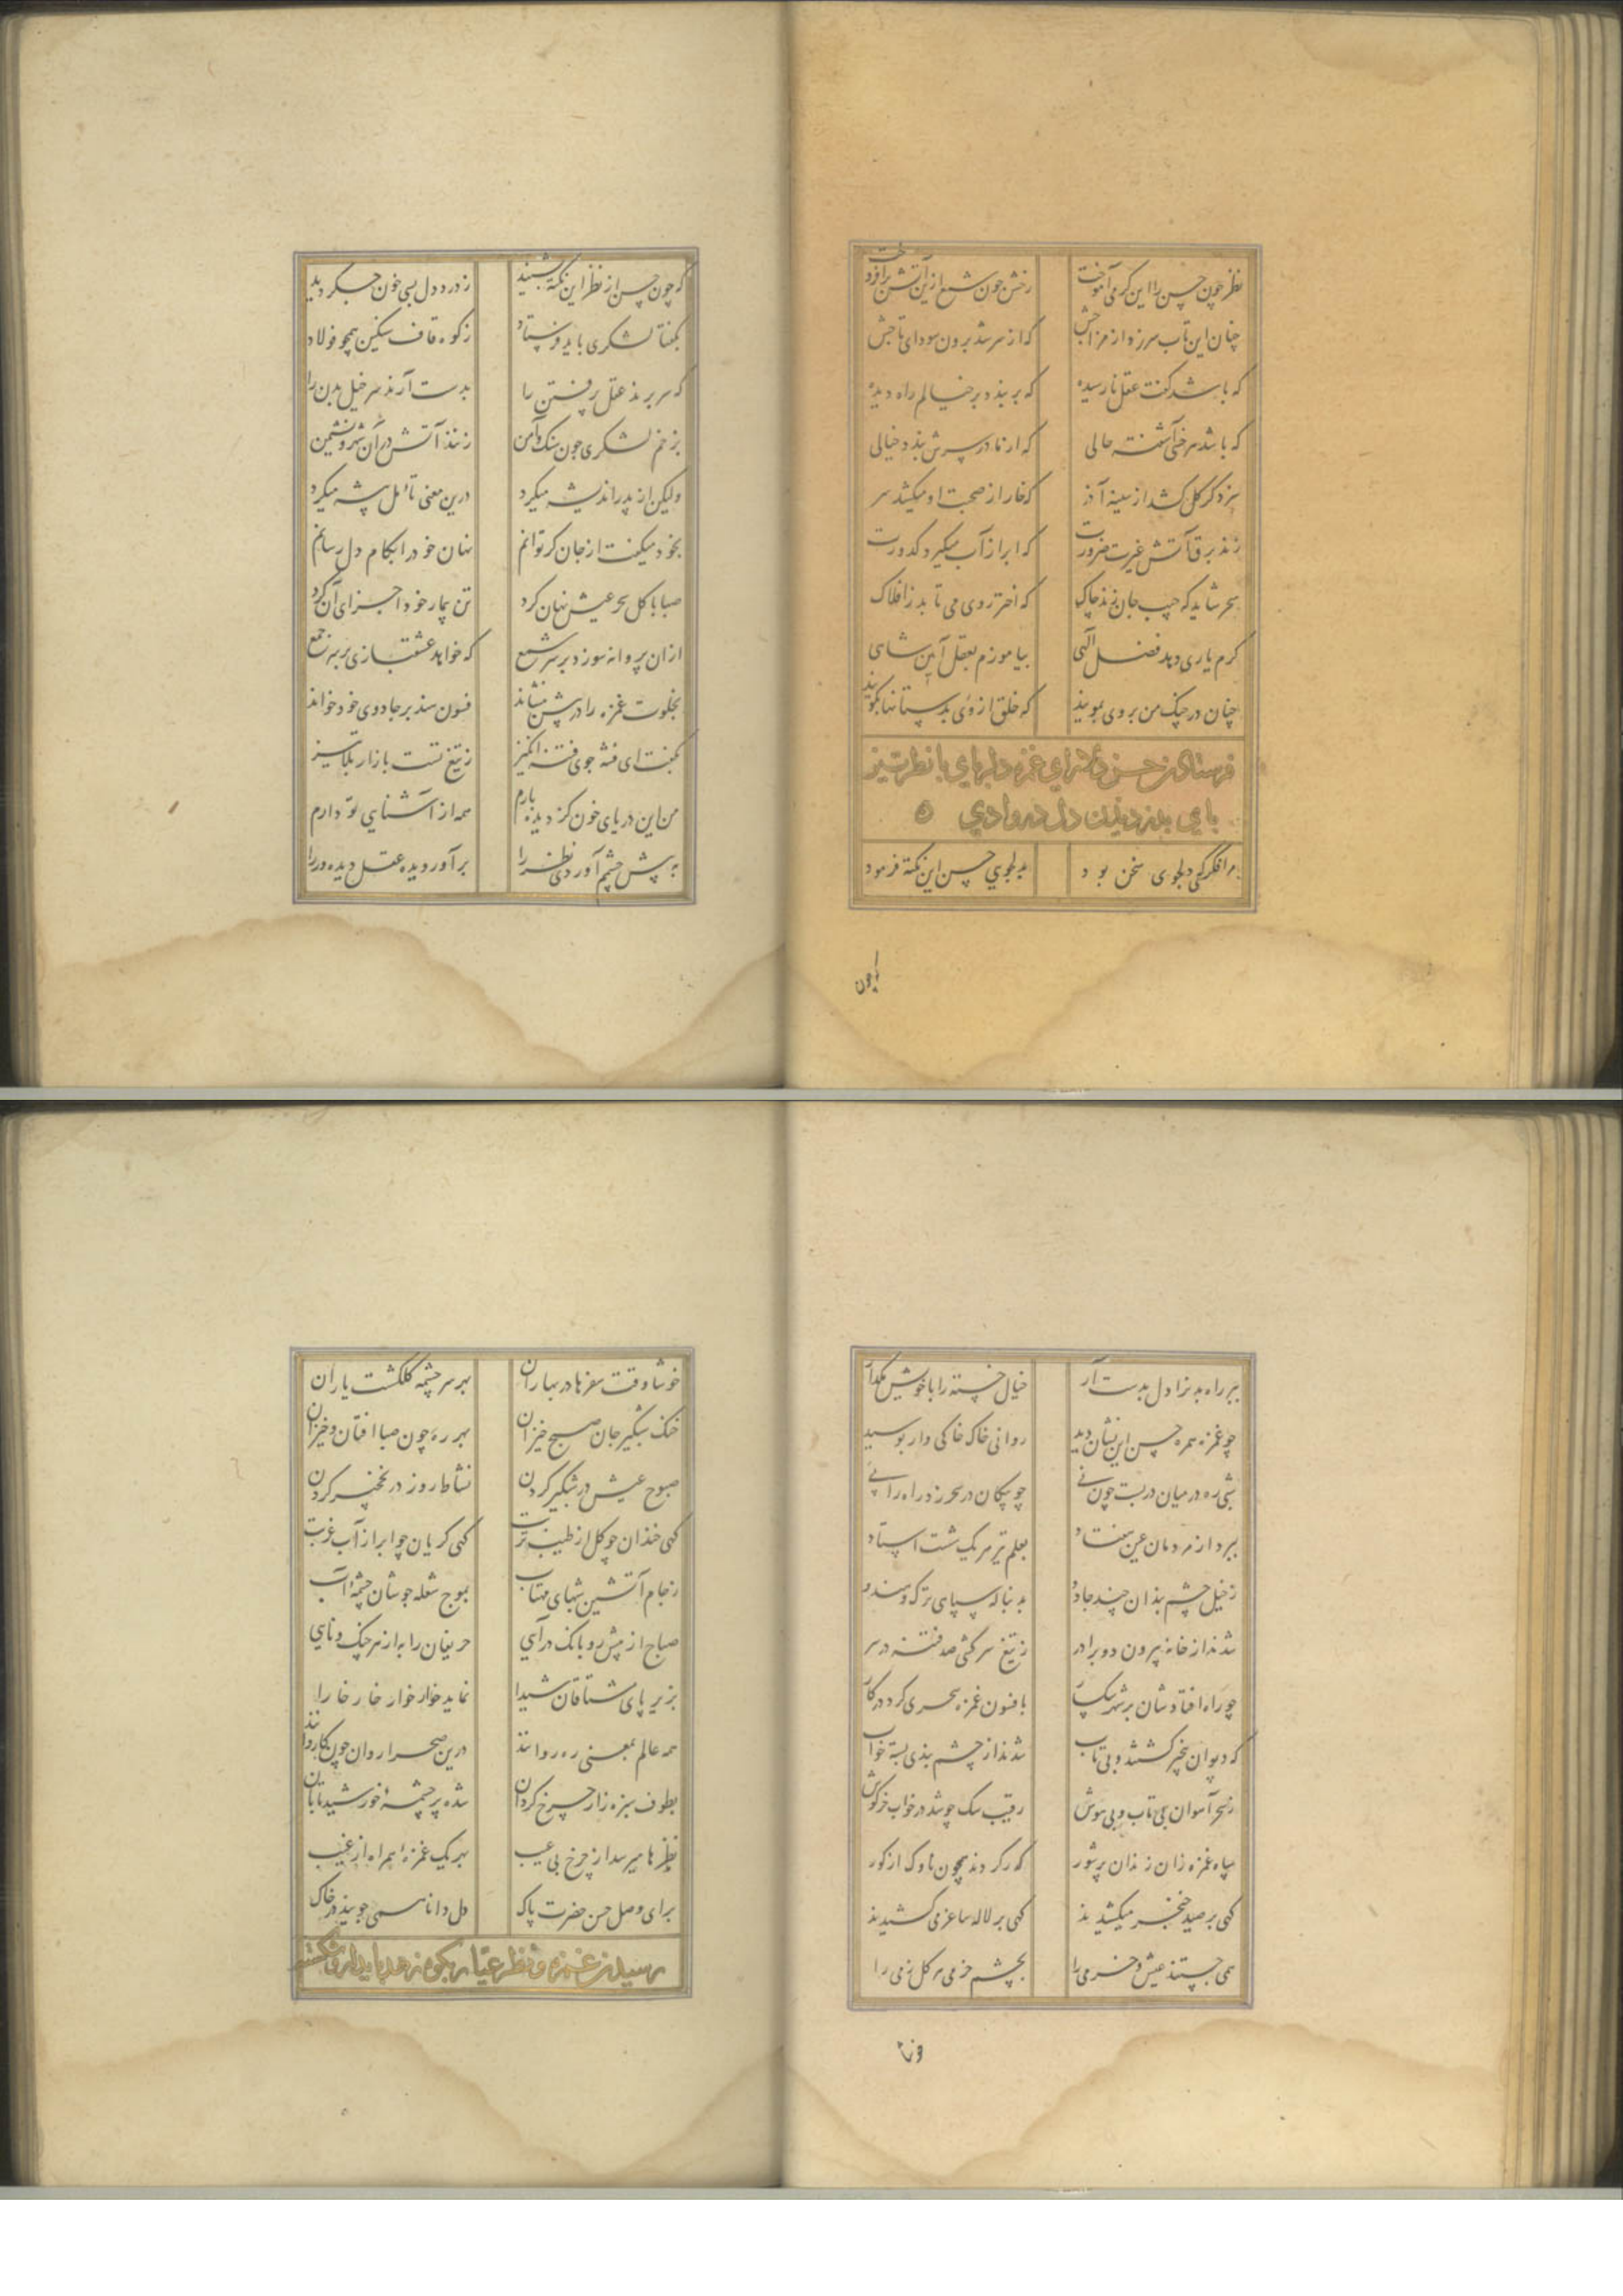 نظر چون حسن را این گرمی آموخت رخش چون شمع ازین آتش برافروخت
چنان این تاب سرزد از مزاجش که از سر شد برون سودای تاجش
که باشد گفت عقل نارسیده که بربندد بر خیالم راه دیده
که باشد هر خی آشفته حالی که ار نادر سرش بندد خیالی
سزد گر گل کشد از سینه آذر که خار از صحبت او میکشد سر
زند برق آتش غیرت ضرورت که ابر از آب میگیرد کدورت
سحر شاید که جیب جان زند چاک که اختر روی می تابد ز افلاک
کرم یاری دهد فضل الهی بیاموزم بعقل آیین شاهی
چنان در چنگ من بروی بمویند که خلق از وی بدستانها بگویند
فرستادن حسن غمزه دلربای با نظر تیز
پای بدزدیدن دل در وادی
مرا فکر کی دلجوی سخن بود بدلجویی حسن این نکته فرمود
که چون حسن از نظر این نکته بشنید ز درد دل بسی خون جگر دید
بگفتا لشکری باید فرستاد ز کوه قاف سنگین همچو فولاد
که سر برند عقل پر فتن را بدست آرند سر خیل بدن را
بزخم لشکری چون سنگ و آهن زنند آتش در آن شهر و نشیمن
ولیکن از پدر اندیشه میکرد درین معنی تأمل پیشه میکرد
بخود میگفت از جان گر توانم نهان خود را بکام دل رسانم
صبا با گل سحر عیش نهان کرد تن بیمار خود اجزای آن کرد
از آن پروانه سوزد بر سر شمع که خواهد عشقبازی بر سر جمع
بخلوت غمزه را در پیش بنشاند فسون سند بر جادوی خود خواند
بگفت ای فتنه جوی فتنه انگیز ز تیغ تست بازار بلا تیز
من این دریای خون کز دیده بارم همه از آشنایی تو دارم
به پیش چشم آور دی نظر را برآور دیده عقل دیده ور را
ببر راه بدن را دل بدست آر خیال خسته را با خویش مگذار
چو غمزه همره حسن این نشان دید روانی خاک خاکی وار بوسید
شبی ره در میان در بست چون نی چو پیکان در سحر زد راه را پی
ببرد از مردمان عین هفتاد بعلم تیر هر یک شست استاد
ز خیل چشم بندان چند جادو بدنباله سپاهی ترک و هندو
شدند از خانه بیرون دو برادر ز تیغ سرکشی صد فتنه در سر
چو راه افتادشان بر شهر سگسار بافسون غمزه سحری کرد در کار
که دیوان سخر گشتند و بی تاب شدند از چشم بندی بسته خواب
ز سحر آهوان بی تاب و بی هوش رقیب سگ چو شد در خواب خرگوش
سپاه غمزه زان زندان پر شور گذر کردند همچون ناوک از گور
گهی بر صید خنجر میکشیدند گهی بر لاله ساغر می کشیدند
همی جستند عیش و خرمی را بچشم خرمی هر گل زمی را
خوشا وقت سفرها در بهاران بهر سر چشمه گلگشت یاران
خنک شبگیر جان صبح خیزان بهر ره چون صبا افتان و خیزان
صبوح عیش در شبگیر کردن نشاط روز در نخچیر کردن
گهی خندان چو گل از طیب تربت گهی گریان چو ابر از آب غربت
ز جام آتشین شبهای مهتاب بموج شعله جوشان چشمه آب
صباح از پیش رو بانگ درآیی حریفان را به از هر چنگ و نایی
بزیر پای مشتاقان شیدا نماید خوار خوار خار خارا
همه عالم بمعنی ره روانند درین صحرا روان چون کاروانند
بطوف سبزه زار چرخ گردان شده بر چشمه خورشید تابان
نظرها میرسد از چرخ بی عیب بهر یک غمزه همراه از غیب
برای وصل حسن حضرت پاک دل دانا همی جویند در خاک
رسیدن غمزه و نظر عیار بکوه زهد